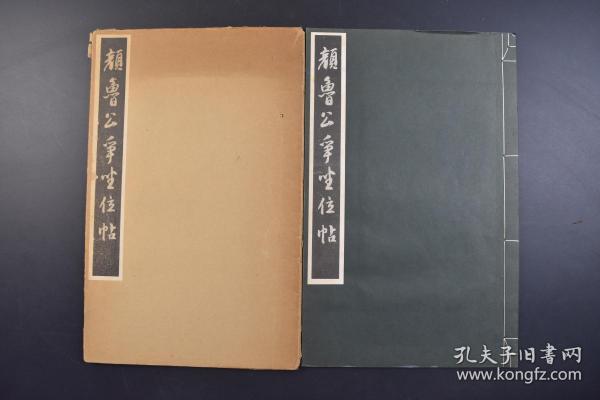 顔魯公爭坐位帖
顔魯公爭坐位帖
孔夫子旧书网
www.kongfz.com